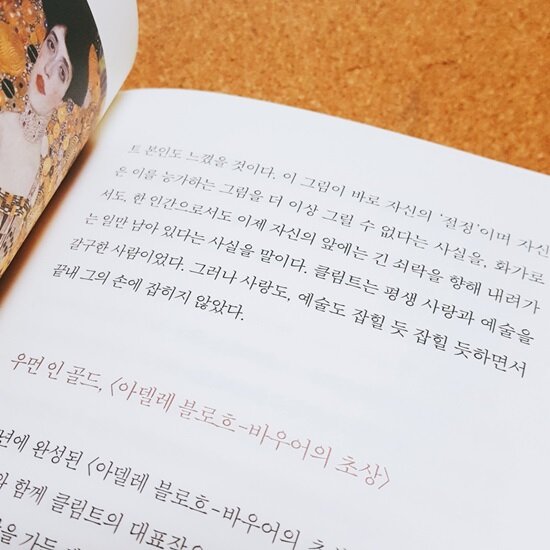 트 본인도 느꼈을 것이다. 이 그림이 바로 자신의 '절정'이며 자신
은 이를 능가하는 그림을 더 이상 그릴 수 없다는 사실을, 화가로
서도, 한 인간으로서도 이제 자신의 앞에는 긴 쇠락을 향해 내려가
는 일만 남아 있다는 사실을 말이다. 클림트는 평생 사랑과 예술을
갈구한 사람이었다. 그러나 사랑도, 예술도 잡힐 듯 잡힐 듯하면서
끝내 그의 손에 잡히지 않았다.
우먼 인 골드, 〈아델레 블로흐-바우어의 초상〉
년에 완성된 〈아델레 블로흐-바우어의 초
와 함께 클림트의 대표작
을 가득